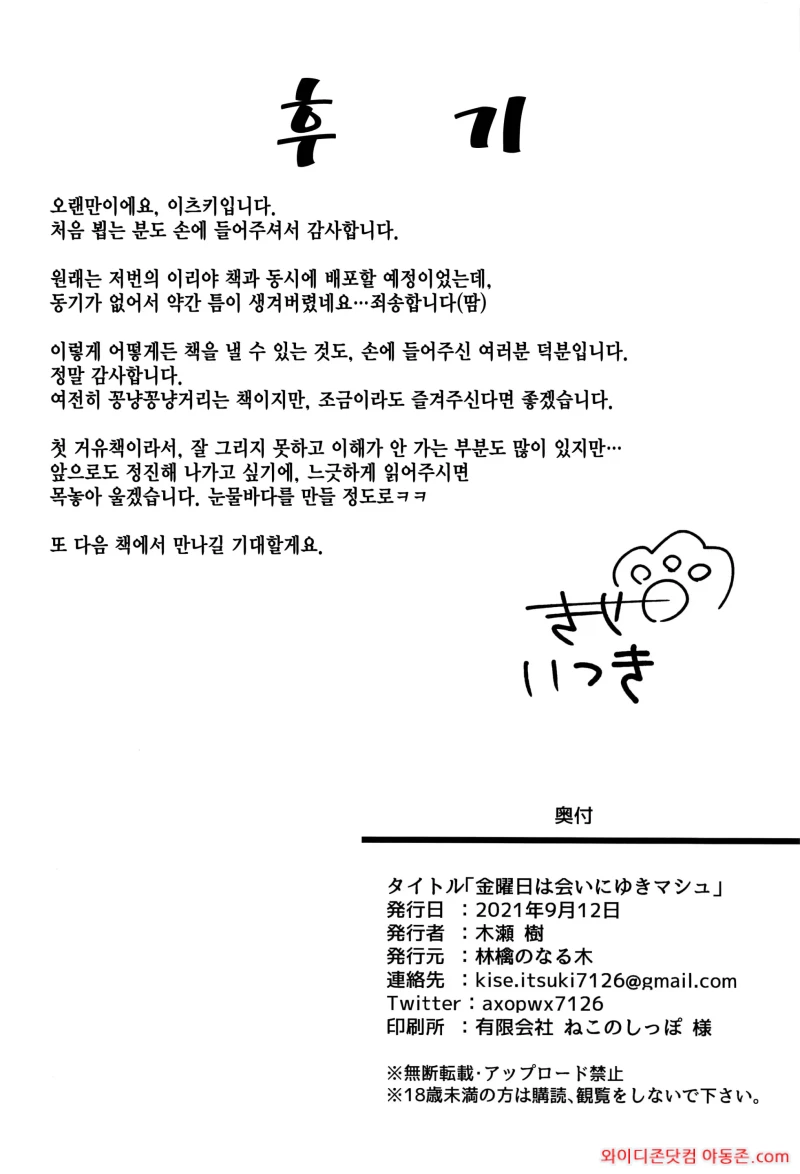 후 기
오랜만이에요, 이츠키입니다.
처음 뵙는 분도 손에 들어주셔서 감사합니다.
원래는 저번의 이리야 책과 동시에 배포할 예정이었는데,
동기가 없어서 약간 틈이 생겨버렸네요…죄송합니다(땀)
이렇게 어떻게든 책을 낼 수 있는 것도, 손에 들어주신 여러분 덕분입니다.
정말 감사합니다.
여전히 꽁냥꽁냥거리는 책이지만, 조금이라도 즐겨주신다면 좋겠습니다.
첫 거유책이라서, 잘 그리지 못하고 이해가 안 가는 부분도 많이 있지만…
앞으로도 정진해 나가고 싶기에, 느긋하게 읽어주시면
목놓아 울겠습니다. 눈물바다를 만들 정도로ㅋㅋ
또 다음 책에서 만나길 기대할게요.
いつき
奥付
タイトル「金曜日は会いにゆきマシュ」
発行日 ：2021年9月12日
発行者 ：木瀬 樹
発行元 ：林檎のなる木
連絡先 ：kise.itsuki7126@gmail.com
Twitter：axopwx7126
印刷所 ：有限会社 ねこのしっぽ 様
※無断転載・アップロード禁止
※18歳未満の方は購読、観覧をしないで下さい。
와이디존닷컴 야동존.com